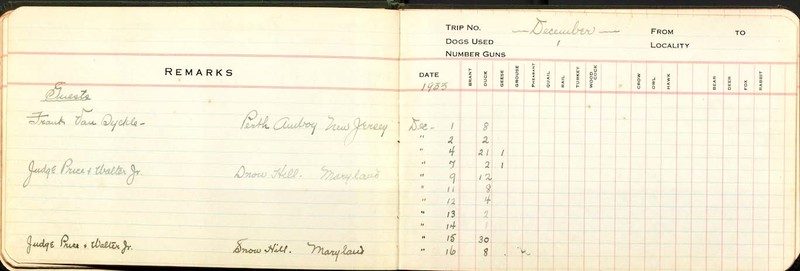 REMARKS
Guests
Frank Van Dyckle - Perth Amboy New Jersey
Judge Price + Walter Jr. Snow Hill. Maryland
Judge Price + Walter Jr. Snow Hill. Maryland
TRIP NO. — December — FROM TO
DOGS USED LOCALITY
NUMBER GUNS
DATE BRANT DUCK GEESE GROUSE PHEASANT QUAIL RAIL TURKEY WOOD COCK CROW OWL HAWK BEAR DEER FOX RABBIT
1935
Dec- 1 8
" 2 2
" 4 21 1
" 7 2 1
" 9 12
" 11 8
" 12 4
" 13 2
" 14
" 15 30
" 16 8